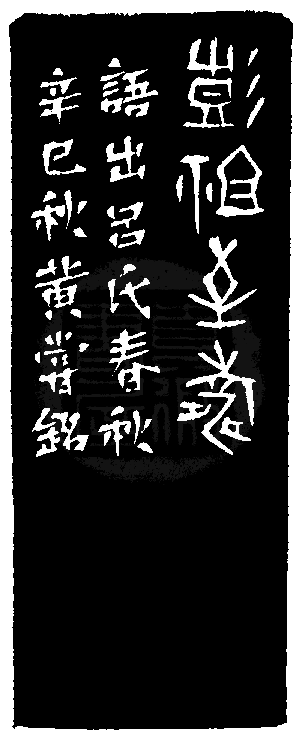 彭祖至壽
語出呂氏春秋
辛巳秋黃嘗銘